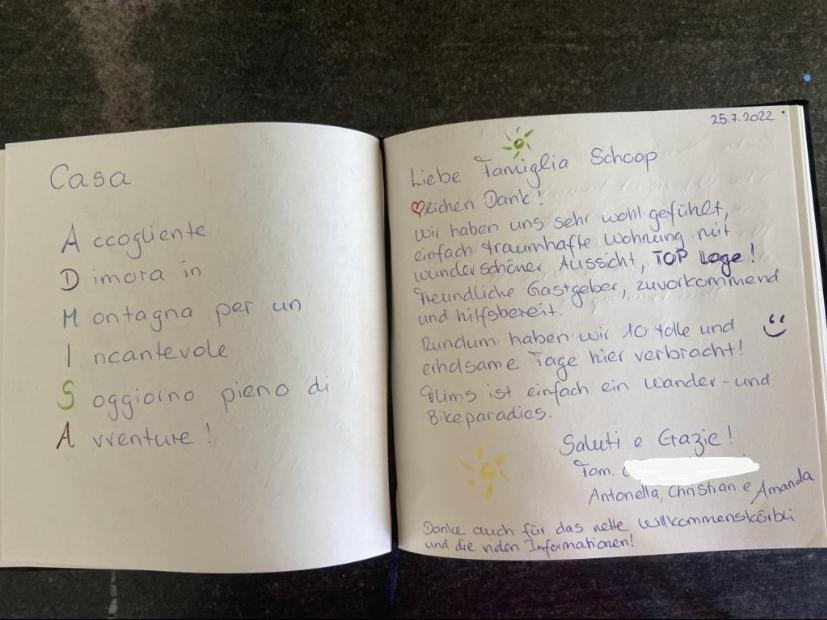 Casa
Accogliente
Dimora in
Montagna per un
Incantevole
Soggiorno pieno di
Avventure!
25.7.2022
Liebe Famiglia Schoop
❤lichen Dank!
Wir haben uns sehr wohl gefühlt,
einfach traumhafte Wohnung mit
wunderschöner Aussicht, TOP Lage!
Freundliche Gastgeber, zuvorkommend
und hilfsbereit.
Rundum haben wir 10 tolle und
erholsame Tage hier verbracht!
Flims ist einfach ein Wander- und
Bikeparadies.
Saluti e Grazie!
Fam.
Antonella, Christian e Amanda
Danke auch für das nette Willkommenskörbli
und die vielen Informationen!